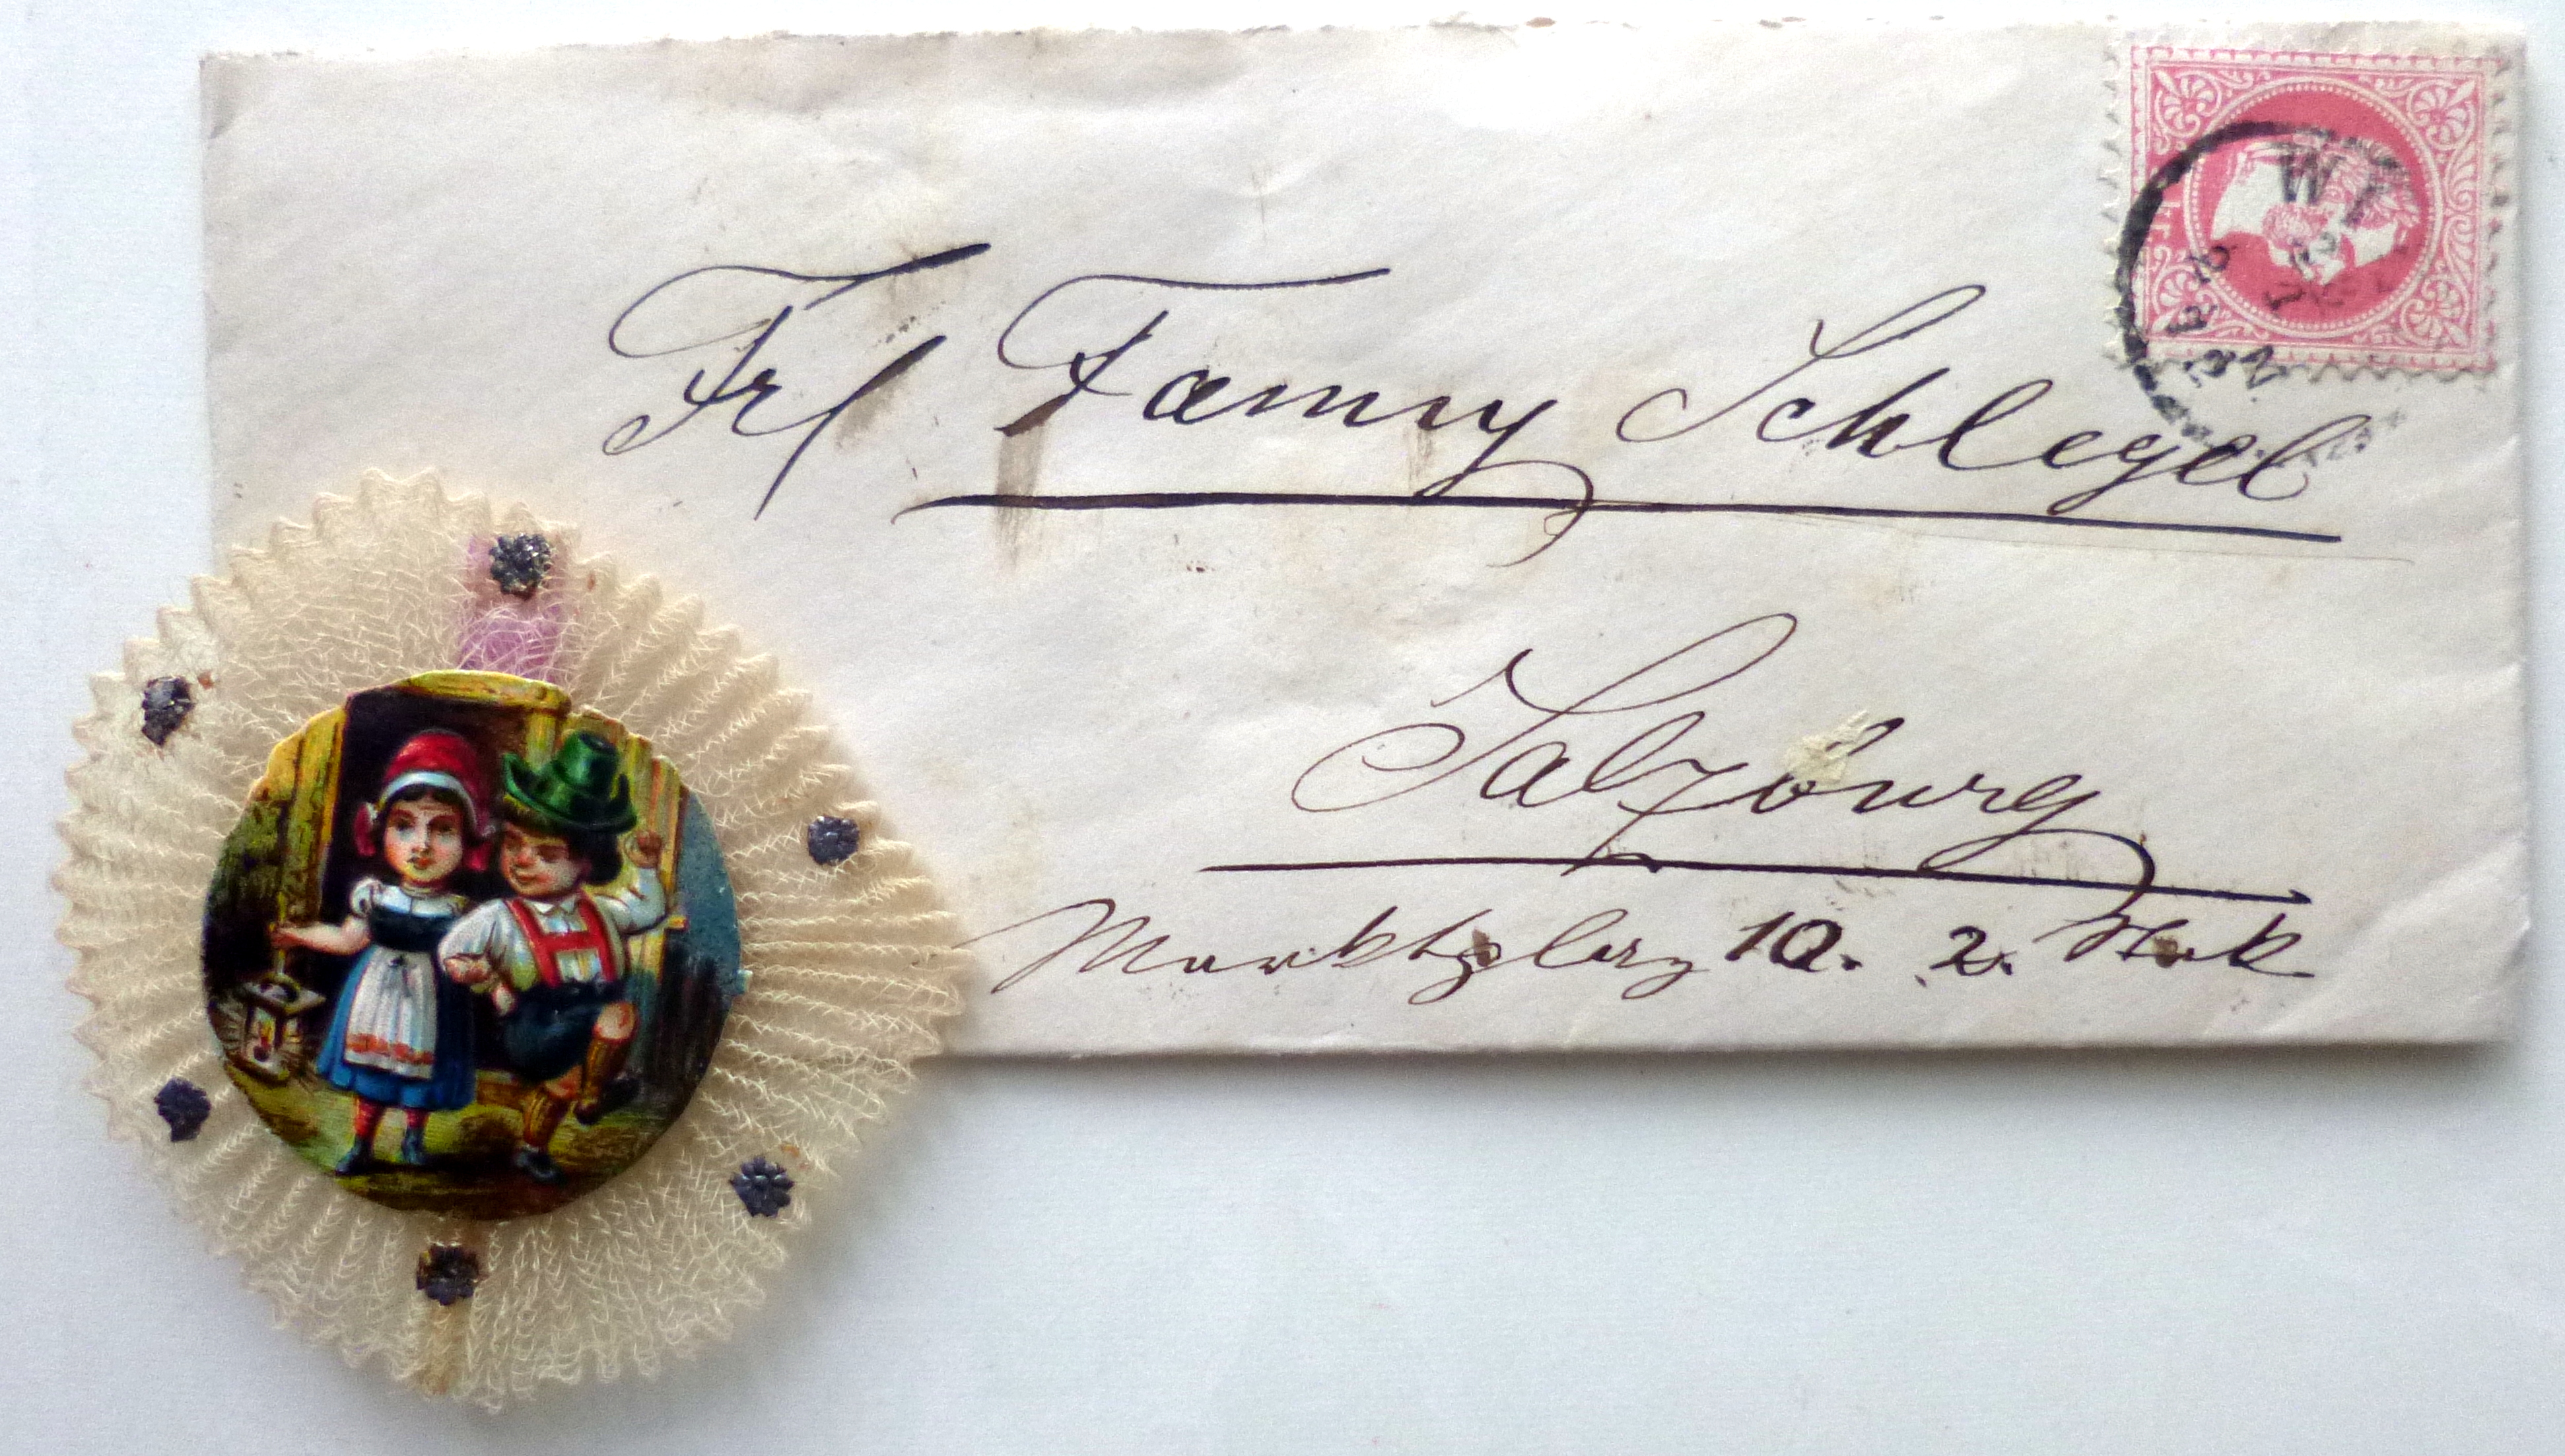 Frl Fanny Schlegel
Salzburg
Marktplatz 10. 2. Stock
WI